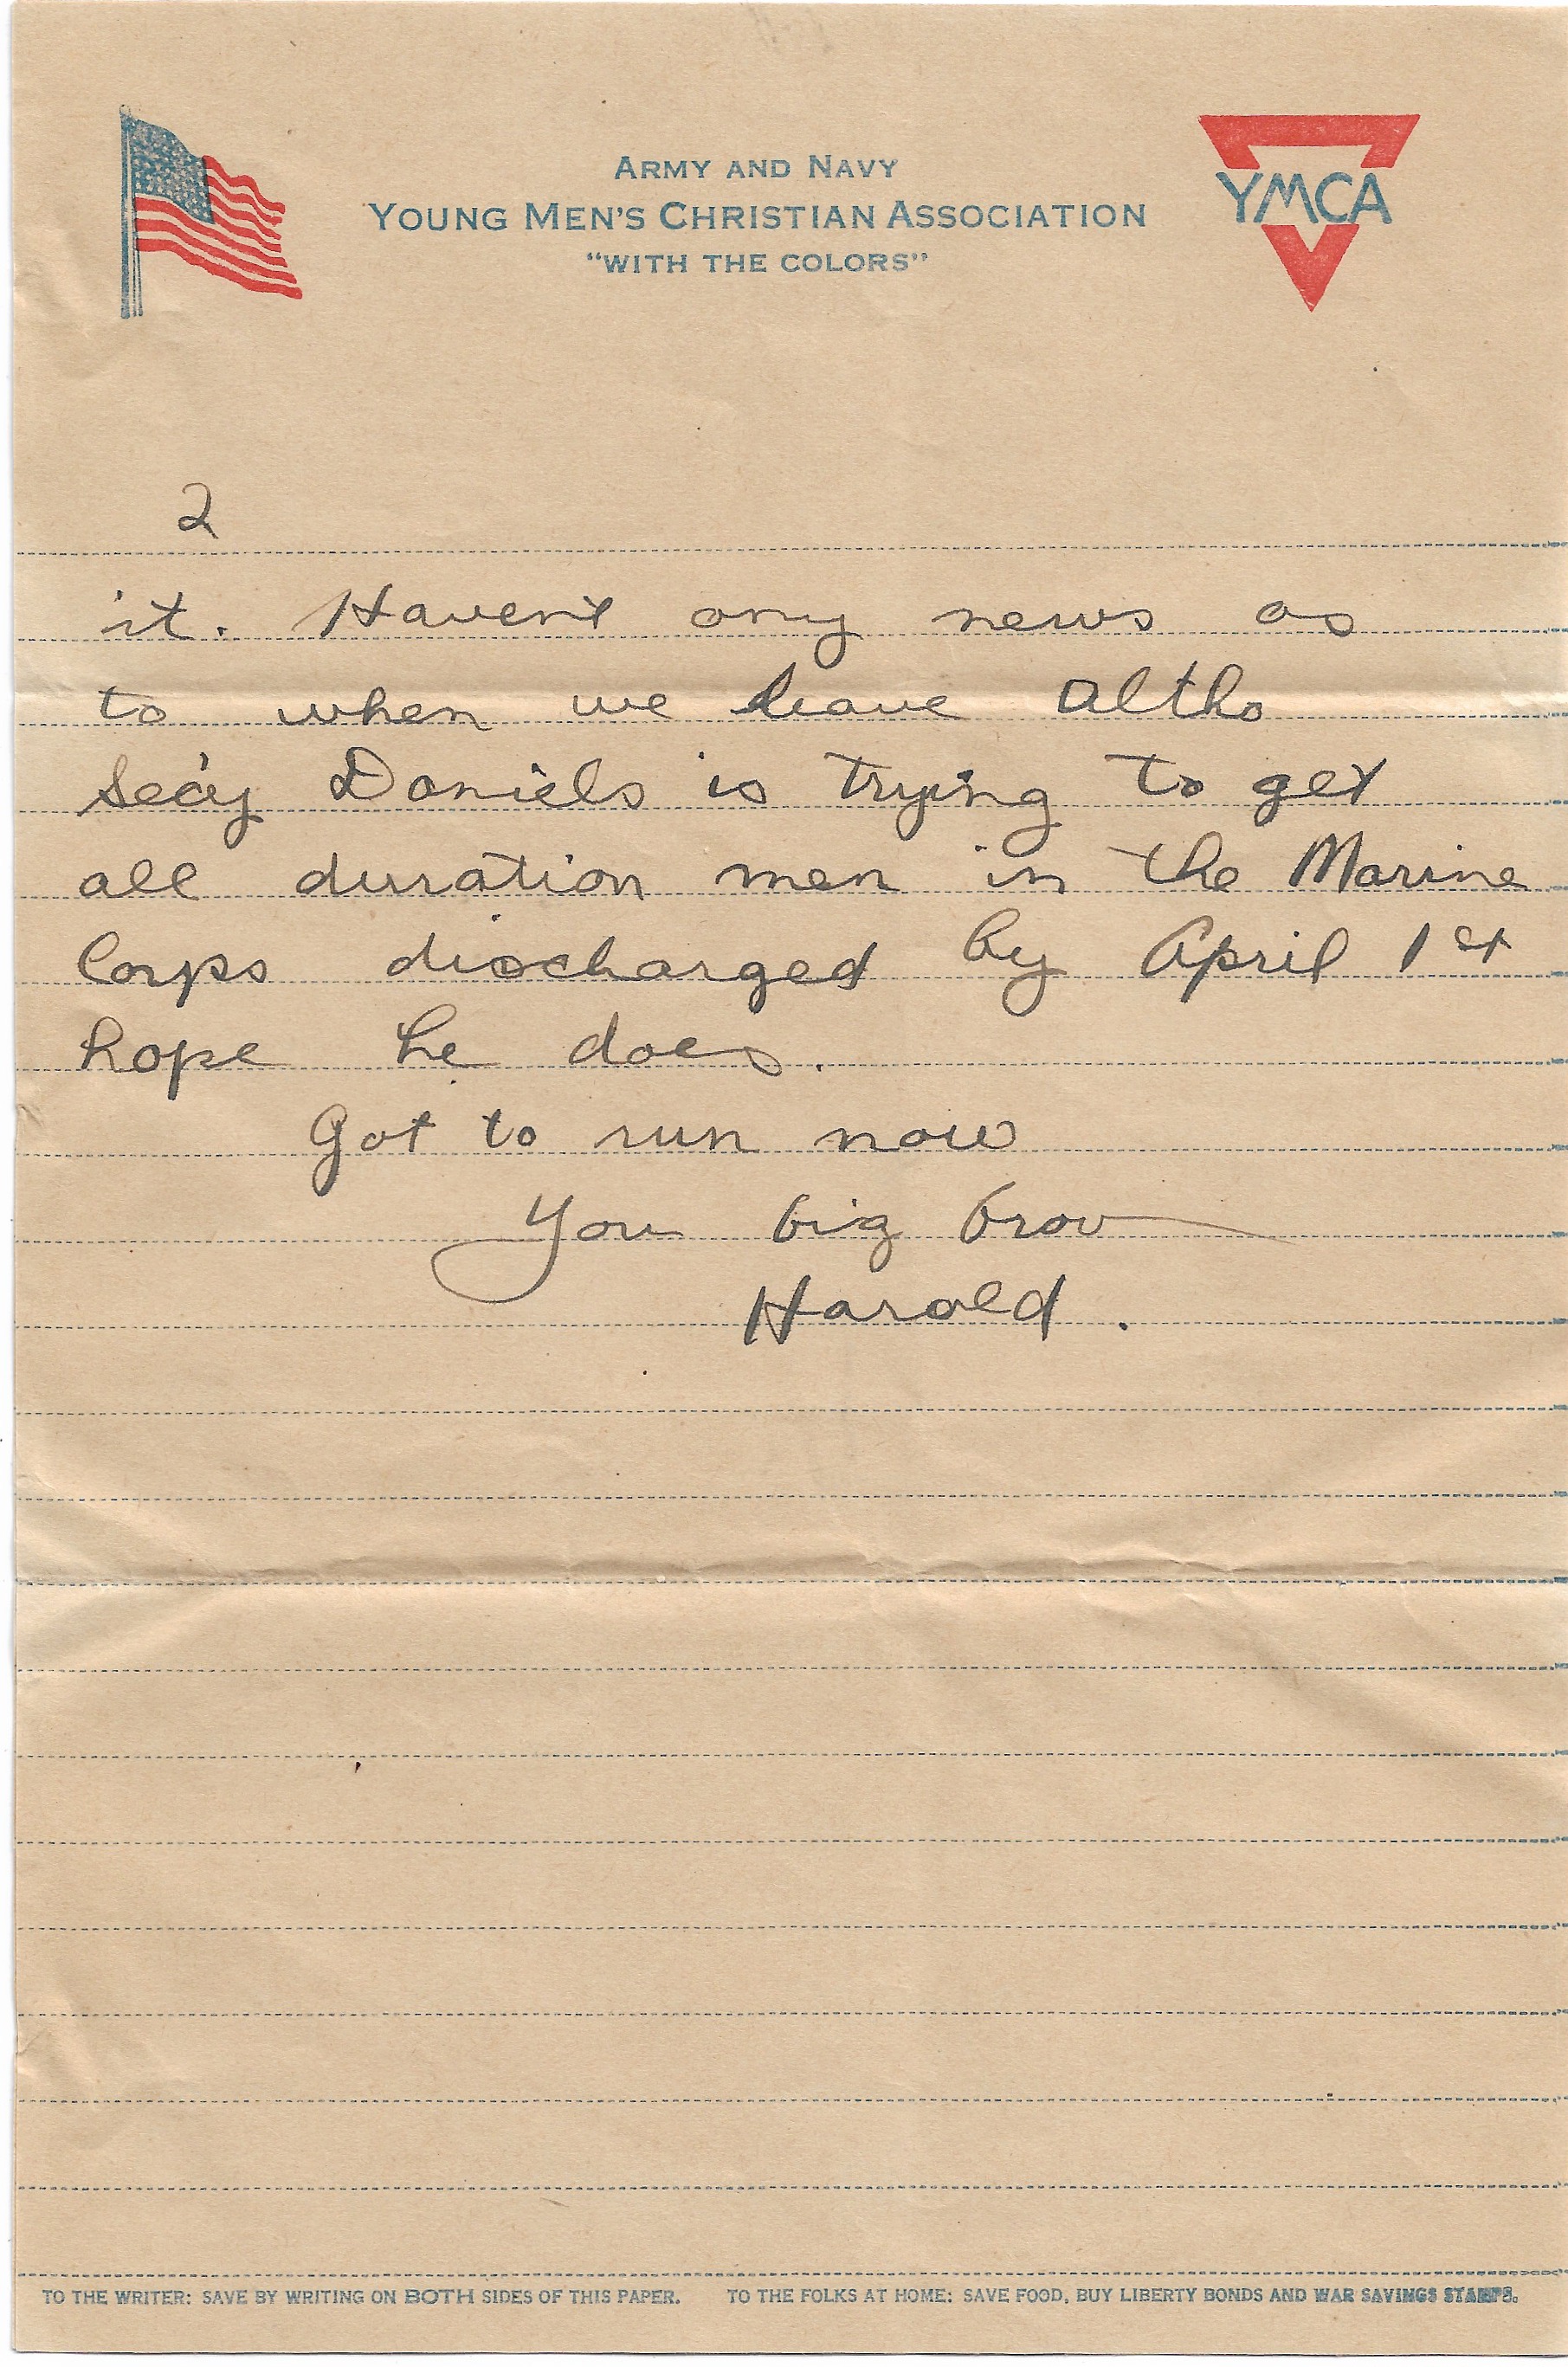 ARMY AND NAVY
YOUNG MEN'S CHRISTIAN ASSOCIATION
"WITH THE COLORS"
YMCA
2
it. Haven't any news as
to when we leave altho
Sec'y Daniels is trying to get
all duration men in the Marine
Corps discharged by April 1st
hope he does.
Got to run now
You big brov
Harold.
TO THE WRITER: SAVE BY WRITING ON BOTH SIDES OF THIS PAPER. TO THE FOLKS AT HOME: SAVE FOOD, BUY LIBERTY BONDS AND WAR SAVINGS STAMPS.